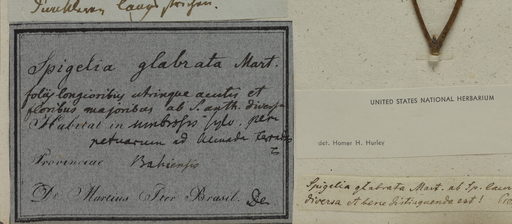 Spigelia glabrata Mart.
foliis longioribus utrinque acutis et
floribus majoribus ab S. anth. diversa
Habitat in umbrosis sylv.
ad Almada
Provinciae Bahiensis
Dr Martius Iter Brasil. De
UNITED STATES NATIONAL HERBARIUM
det. Homer H. Hurley
Spigelia glabrata Mart. ab Sp.
diversa et bene distinguenda est!